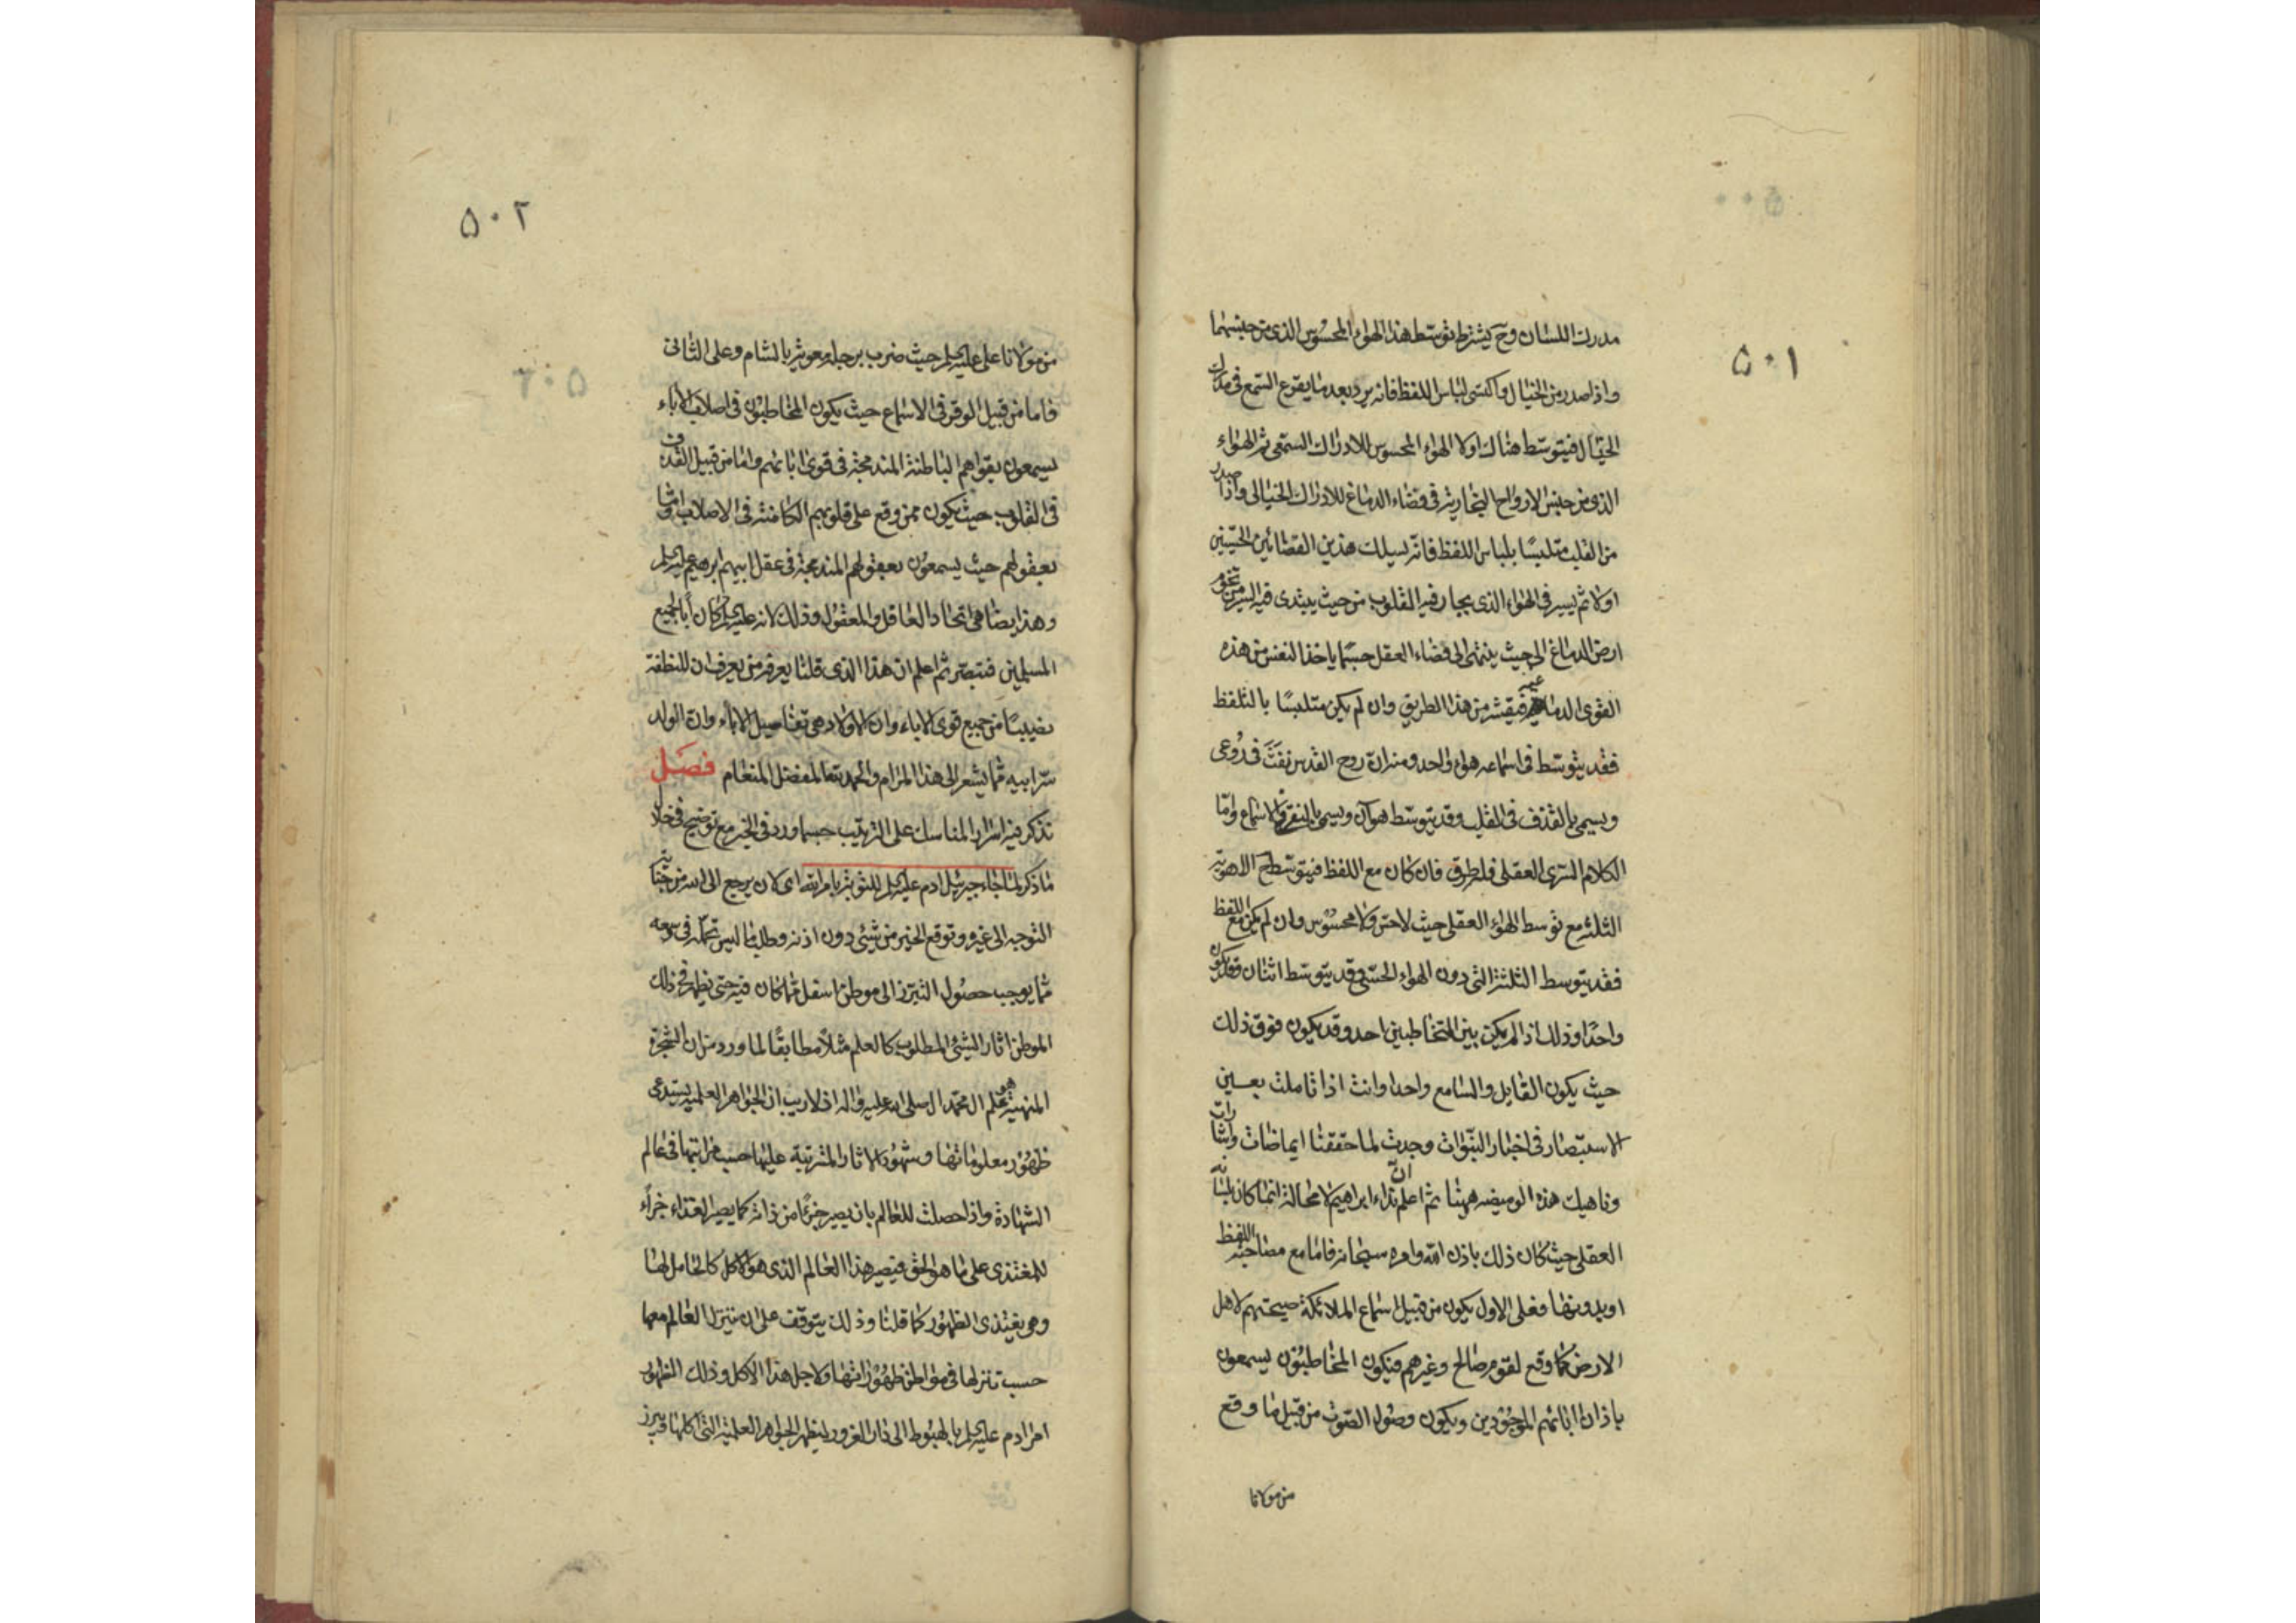 ٥٠١
مدرك اللسان وح يشترط توسّط هذا الهواء المحسوس الذى من جنسهما
واذا صدر من الخيال واكتسى لباس اللفظ فانه يرد بعد ما يقرع السّمع فى مدرك
الخيال فيتوسّط هناك اولا الهواء المحسوس للادراك السمعى ثم الهواء
الذى من جنس الارواح البخارية فى فضاء الدماغ للادراك الخيالى واذا صدر
من القلب متلبسًا بلباس اللفظ فانه يسلك هذين الفضائين الحسّيين
اولا ثم يسير فى الهواء الذى يجاز فيه القلوب من حيث يبتدى فيه السير من تخوم
ارض الدماغ الى حيث ينتهى الى فضاء العقل حسبما ياخذ النفس من هذه
القوى الدماغية فيقشر من هذا الطريق وان لم يكن متلبسًا بالتلفظ
فقد يتوسّط فى اسماعه هواء واحد ومنه ان روح القدس نفث فى رُوعى
ويسمى بالقذف فى القلب وقد يتوسّط هوآن ويسمى بالنقر فى الاسماع وامّا
الكلام السّرى العقلى فله طرق فان كان مع اللفظ فيتوسّط الاهوية
الثلثة مع توسط الهواء العقلى حيث لا حسّ ولا محسوس وان لم يكن مع اللفظ
فقد يتوسط الثلثة التى دون الهواء الحسّى وقد يتوسّط اثنان وقد يكون
واحدًا وذلك اذا لم يكن بين المتخاطبين احد وقد يكون فوق ذلك
حيث يكون القايل والسامع واحدا وانت اذا تاملت بعين
الاستبصار فى اخبار النبوّات وجدت لما حققنا ايماضات واشارات
وناهيك هذه الوميضه ههنا ثم اعلم انّ نداء ابراهيم لا محالة انما كان بلسانه
العقلى حيث كان ذلك باذن الله وامره سبحانه فاما مع مصاحبة اللفظ
او بدونها فعلى الاول يكون من قبيل اسماع الملائكة صيحتهم لاهل
الارض كما وقع لقوم صالح وغيرهم فيكون المخاطبون يسمعون
باذان ابائهم الموجودين ويكون وصول الصّوت من قبيل ما وقع
من مولانا
٥٠٢
من مولانا على عليه السلم حيث ضرب برجله معوية بالشام وعلى الثانى
فاما من قبيل الوقر فى الاسماع حيث يكون المخاطبون فى اصلاب الاباء
يسمعون بقواهم الباطنة المندمجة فى قوى ابائهم واما من قبيل القذف
فى القلوب حيث يكون ممن وقع على قلوبهم الكامنة فى الاصلاب وامّا
بعقولهم حيث يسمعون بعقولهم المندمجة فى عقل ابيهم ابرهيم عليه السلم
وهذا يضاهى اتحاد العاقل والمعقول وذلك لانه عليه السلم كان ابا لجميع
المسلمين فتبصّر ثم اعلم ان هذا الذى قلنا يعرفه من يعرف ان للنطفة
نصيبًا من جميع قوى الاباء وان الاولاد هى تفاصيل الاباء وان الولد
سرّ ابيه مما يشعر الى هذا المرام والحمد لله المفضل المنعام فصَل
نذكر فيه اسرار المناسك على الترتيب حسبما ورد فى الخبر مع توضيح فى خلال
ما ذكر لما جاء جبرئيل ادم عليه السلم للتوبة بامر الله اى لان يرجع الى الله من جناية
التوجه الى غيره وتوقع الخير من شئ دون اذنه وطلب ما ليس تحمّله فى وسعه
مما يوجب حصول التبرّز الى موطن اسفل مما كان فيه حتى يظهر فى ذلك
الموطن اثار الشئ المطلوب كالعلم مثلًا مطابقًا لما ورد من ان الشجرة
المنهية هى علم ال محمد صلى الله عليه واله اذ لا ريب ان الجواهر العلمية يستدعى
ظهور معلوماتها وشهود الاثار المترتبة عليها حسب مراتبها فى عالم
الشهادة واذا حصلت للعالم بان يصير جزءًا من ذاته كما يصير الغذاء جزاء
للمغتذى على ما هو الحق فيصير هذا العالم الذى هو الاكل كالحامل لها
وهو يغتذى الظهور كما قلنا وذلك يتوقف على ان تنزل العالم معها
حسب تنزلها فى مواطن ظهوراتها ولاجل هذا الاكل وذلك الظهور
امر ادم عليه السلم بالهبوط الى دار الغرور ليظهر الجواهر العلمية التى اكلها فيبرز